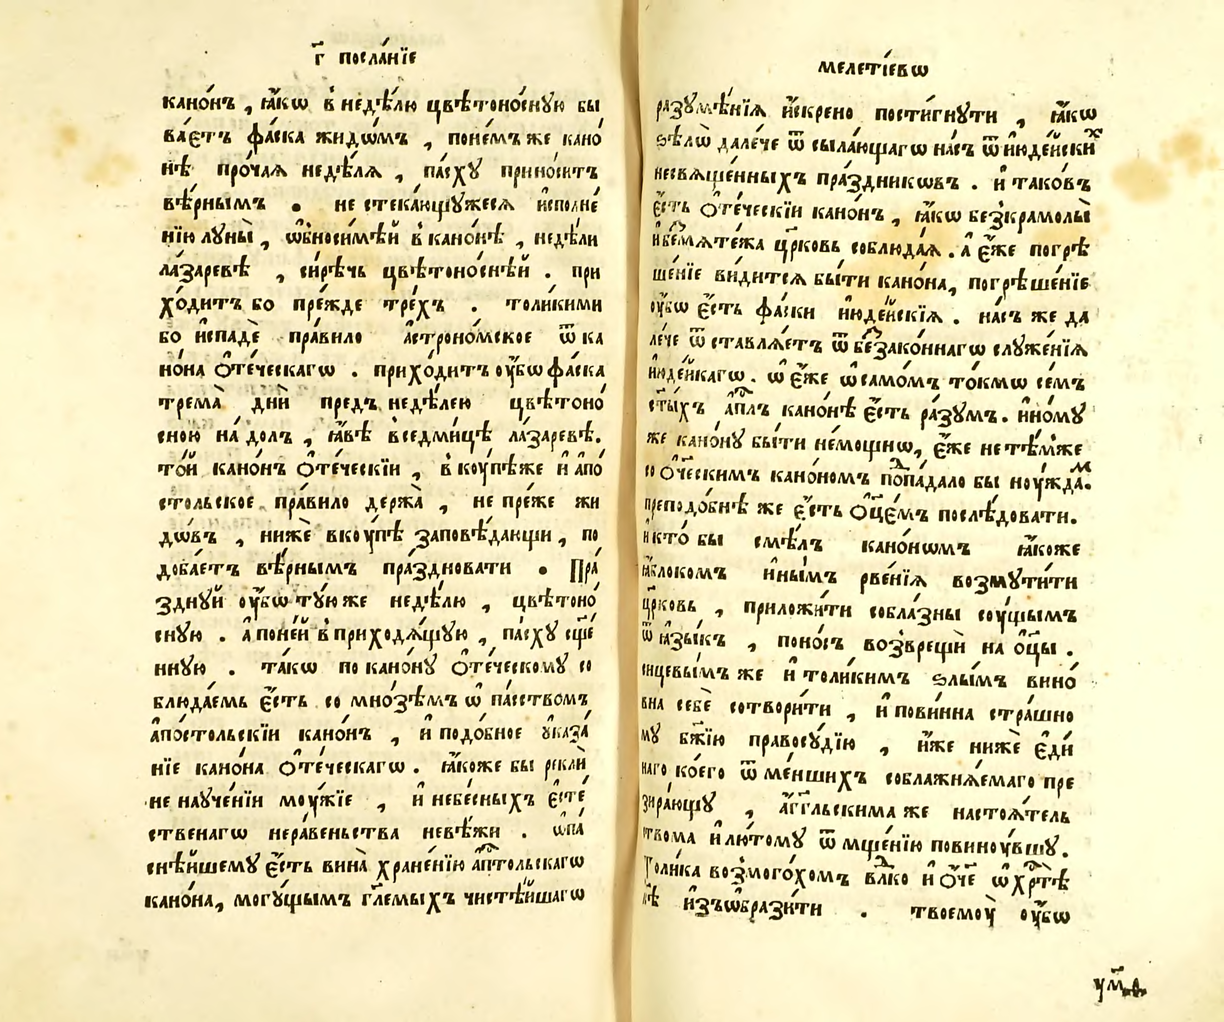 г҃ посла́нїе
кано́нъ , ꙗ҆́кѡ в̾недѣ́лю цвѣтоно́сную бы
ва́етъ фа́ска жидѡ́мъ , поне́мъ же кано́
нѣ про́чаѧ недѣ́лѧ , па́сху прино́ситъ
вѣ́рнымъ . не стека́ющужесѧ и҆сполне́
нїю луны̀ , ѡ҆бноси́мѣй в̾кано́нѣ , недѣ́ли
ла́заревѣ , си́рѣчь цвѣтоно́снѣй . при
хо́дитъ бо пре́жде тре́хъ . толи́кими
бо и҆спадѐ пра́вило а҆строно́мское ѿ ка
но́на ѻ҆те́ческагѡ . прихо́дитъ ᲂу҆́бѡ фа́ска
трема̀ дни̑ предъ недѣ́лею цвѣтоно́
сною на́ долъ , ꙗ҆́вѣ в̾седми́цѣ ла́заревѣ.
то́й кано́нъ ѻ҆те́ческїи , в̾коу́пѣже и҆ а҆по́
стольское пра́вило держа̀ , не пре́же жи
дѡ́въ , нижѐ вкоу́пѣ заповѣ́данши , по
доба́етъ вѣ́рнымъ пра́здновати . Пра́
зднуй ᲂу҆́бѡ ту́юже недѣ́лю , цвѣтоно́
сную . а҆ поне́й в̾приходѧ́щую , па́сху сщ҃е́
нную . та́кѡ по кано́ну ѻ҆те́ческому со
блюда́емь є҆́сть со мно́зѣмъ ѡ҆па́сствомъ
а҆по́стольскїи кано́нъ , и҆ подо́бное ᲂу҆каза́
нїе кано́на ѻ҆те́ческагѡ . ꙗ҆́коже бы реклѝ
не науче́нїи моу́жїе , и҆ небе́сныхъ є҆сте́
ственагѡ нера́веньства неве́жи . ѡ҆па́
снѣ́йшему є҆́сть вина̀ хране́нїю а҆пⷭ҇тольскагѡ
кано́на, могу́щымъ гл҃емыхъ чистѣ́йшагѡ
мелетїевѡ
разумѣ́нїѧ и҆́скрено пости́гнути , ꙗ҆́кѡ
ѕѣлѡ̀ дале́че ѿ сыла́ющагѡ на́съ ѿ и҆юде́йскихъ
несвѧще́нныхъ пра́здникѡвъ . и҆ тако́въ
є҆́сть ѻ҆те́ческїи кано́нъ , ꙗ҆́кѡ без̾крамолы̀
и҆ без̾мѧте́жа цр҃ковь соблюда́ѧ . а҆ є҆́же погрѣ
ше́нїе ви́дитсѧ бы́ти кано́на, погрѣше́нїе
ᲂу҆́бѡ є҆́сть фа́ски и҆юде́йскїѧ . на́съ же да
ле́че ѿ ставлѧ́етъ ѿ без̾зако́ннагѡ служе́нїѧ
и҆юде́йкагѡ . ѡ҆ є҆́же ѡ҆ само́мъ то́кмѡ се́мъ
ст҃ы́хъ а҆пⷭ҇лъ кано́нѣ є҆́сть ра́зумъ. и҆но́му
же кано́ну бы́ти не́мощнѡ, є҆́же не тѣ́мже
со ѻ҆ч҃ескимъ кано́номъ попа́дало бы ноу́ждамъ.
преподо́бнѣ же є҆́сть ѻ҆ц҃е́мъ послѣ́довати.
и҆ кто́ бы смѣ́лъ кано́нѡмъ ꙗ҆́коже
ꙗ҆́блокомъ и҆ны́мъ рве́нїѧ возмути́ти
цр҃ковь , приложи́ти собла́зны соу́щымъ
ѿ ꙗ҆зы́къ , поно́съ воз̾врещѝ на ѻ҆ц҃ы̀ .
сицевы́мъ же и҆ толи́кимъ ѕлы́мъ вино́
вна себѐ сотвори́ти , и҆ пови́нна стра́шно
му бж҃їю правосу́дїю , и҆́же нижѐ є҆ди́
наго ко́его ѿ ме́ншихъ соблажнѧ́емаго пре
зира́ющу , а҆́гг҃льскима же настоѧ́тель
твома и҆ лю́тому ѿ мще́нїю повиноу́вшу .
Толи́ка воз̾мого́хомъ влⷣко и҆ ѻ҆́ч҃е ѡ҆ хрⷭ҇тѣ̀
и҆зъѡбрази́ти . твоемоу̀ ᲂу҆́бѡ